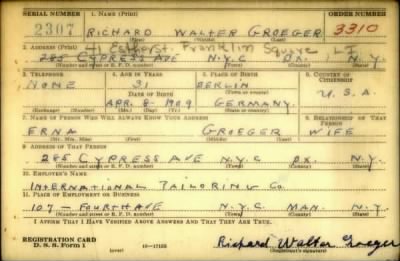 SERIAL NUMBER 1. NAME (Print) ORDER NUMBER
2307 RICHARD WALTER GROEGER 3310
2. ADDRESS (Print) 41 Esther St. Franklin Square L I
285 CYPRESS AVE N.Y.C BX. N.Y.
3. TELEPHONE 4. AGE IN YEARS 5. PLACE OF BIRTH 6. COUNTRY OF CITIZENSHIP
NONE 31 BERLIN
DATE OF BIRTH U.S.A.
APR. 8 1909 GERMANY
7. NAME OF PERSON WHO WILL ALWAYS KNOW YOUR ADDRESS 8. RELATIONSHIP OF THAT PERSON
ERNA GROEGER WIFE
(Mr., Mrs., Miss) (First) (Middle) (Last)
9. ADDRESS OF THAT PERSON
285 CYPRESS AVE N.Y.C BX. N.Y.
(Number and street or R. F. D. number) (Town) (County) (State)
10. EMPLOYER'S NAME
INTERNATIONAL TAILORING Co.
11. PLACE OF EMPLOYMENT OR BUSINESS
107 - FOURTH AVE N.Y.C MAN. N.Y.
(Number and street or R. F. D. number) (Town) (County) (State)
I AFFIRM THAT I HAVE VERIFIED ABOVE ANSWERS AND THAT THEY ARE TRUE.
REGISTRATION CARD
D. S. S. Form 1 (over) 16—17105 Richard Walter Groeger